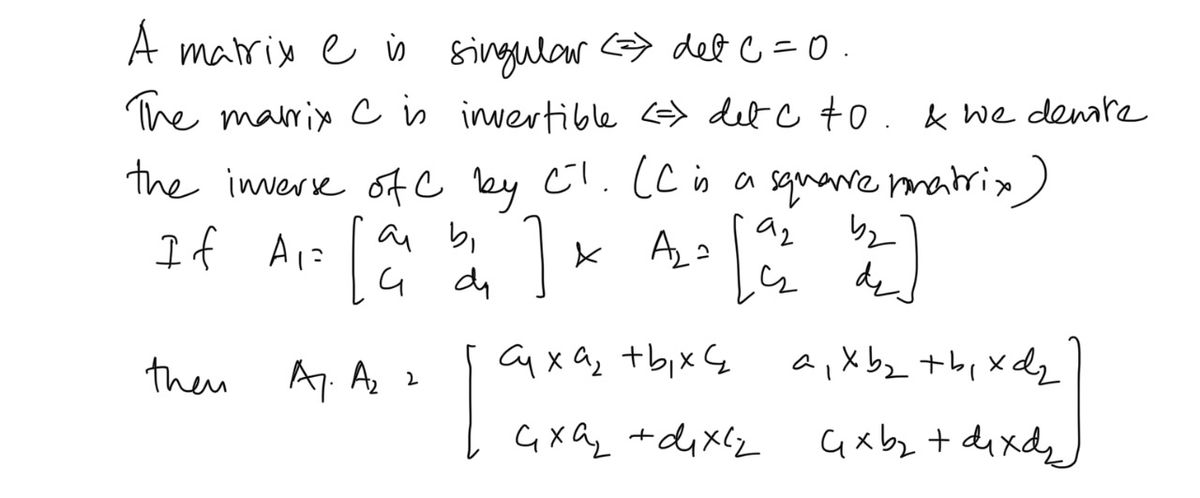 A matrix C is singular <=> det C = 0.
The matrix C is invertible <=> det C ≠ 0. & we denote
the inverse of C by C⁻¹. (C is a square matrix)
If A₁ = [a₁ b₁; c₁ d₁] & A₂ = [a₂ b₂; c₂ d₂]
then A₁. A₂ = [a₁ × a₂ + b₁ × c₂ a₁ × b₂ + b₁ × d₂; c₁ × a₂ + d₁ × c₂ c₁ × b₂ + d₁ × d₂]